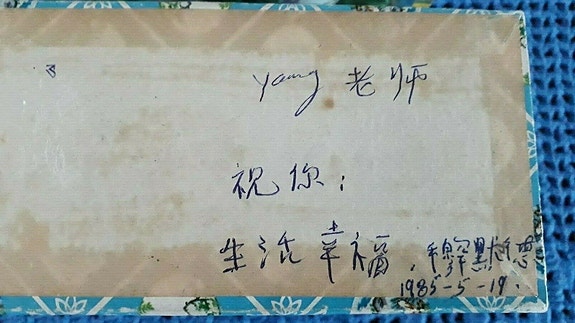 yang 老师
祝你：
生活幸福，穆罕默德
1985-5-19.